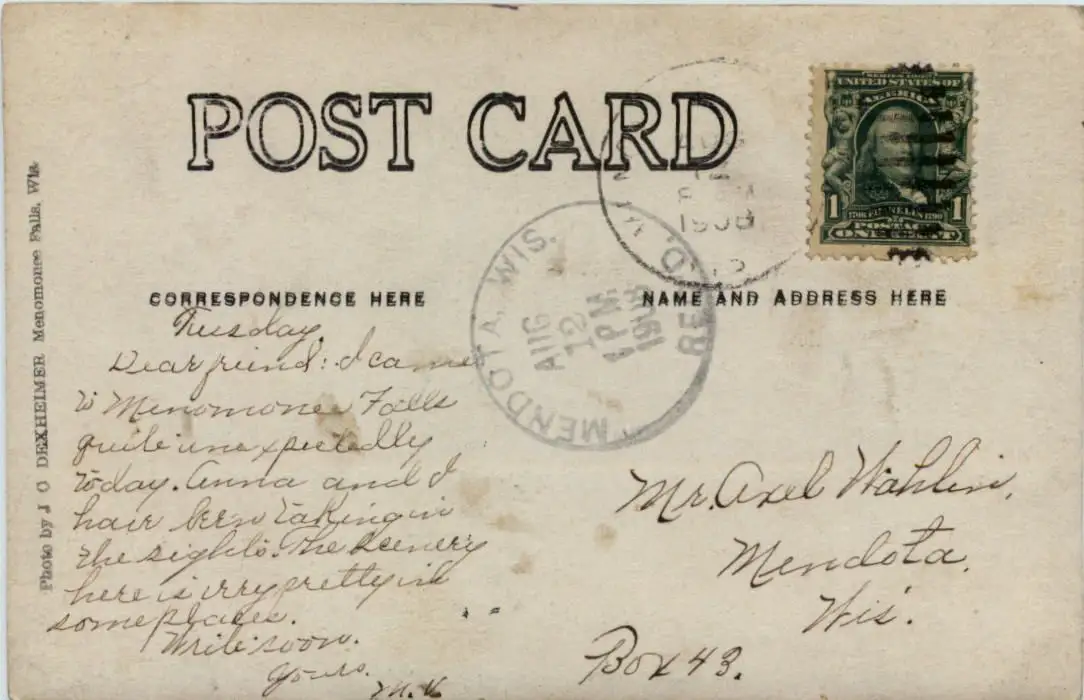 POST CARD
SERIES 1902
UNITED STATES OF
AMERICA
1 1706 FRANKLIN 1790 1
POSTAGE
ONE CENT
12
1908
MENDOTA, WIS.
AUG
12
1 PM
1908
REC'D.
CORRESPONDENCE HERE
NAME AND ADDRESS HERE
Photo by J O DEXHEIMER Menomonee Falls, Wis.
Tuesday.
Dear friend: I came
to Menomonee Falls
quite unexpectedly
today. Anna and I
have been taking in
the sights. The scenery
here is very pretty in
some places.
Write soon.
Yours.
M. K
Mr. Axel Wahlin,
Mendota,
Wis.
Box 43.